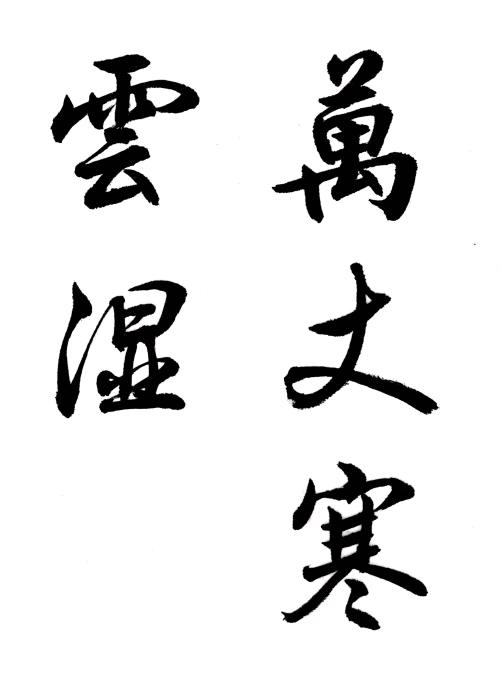 萬丈寒
雲湿